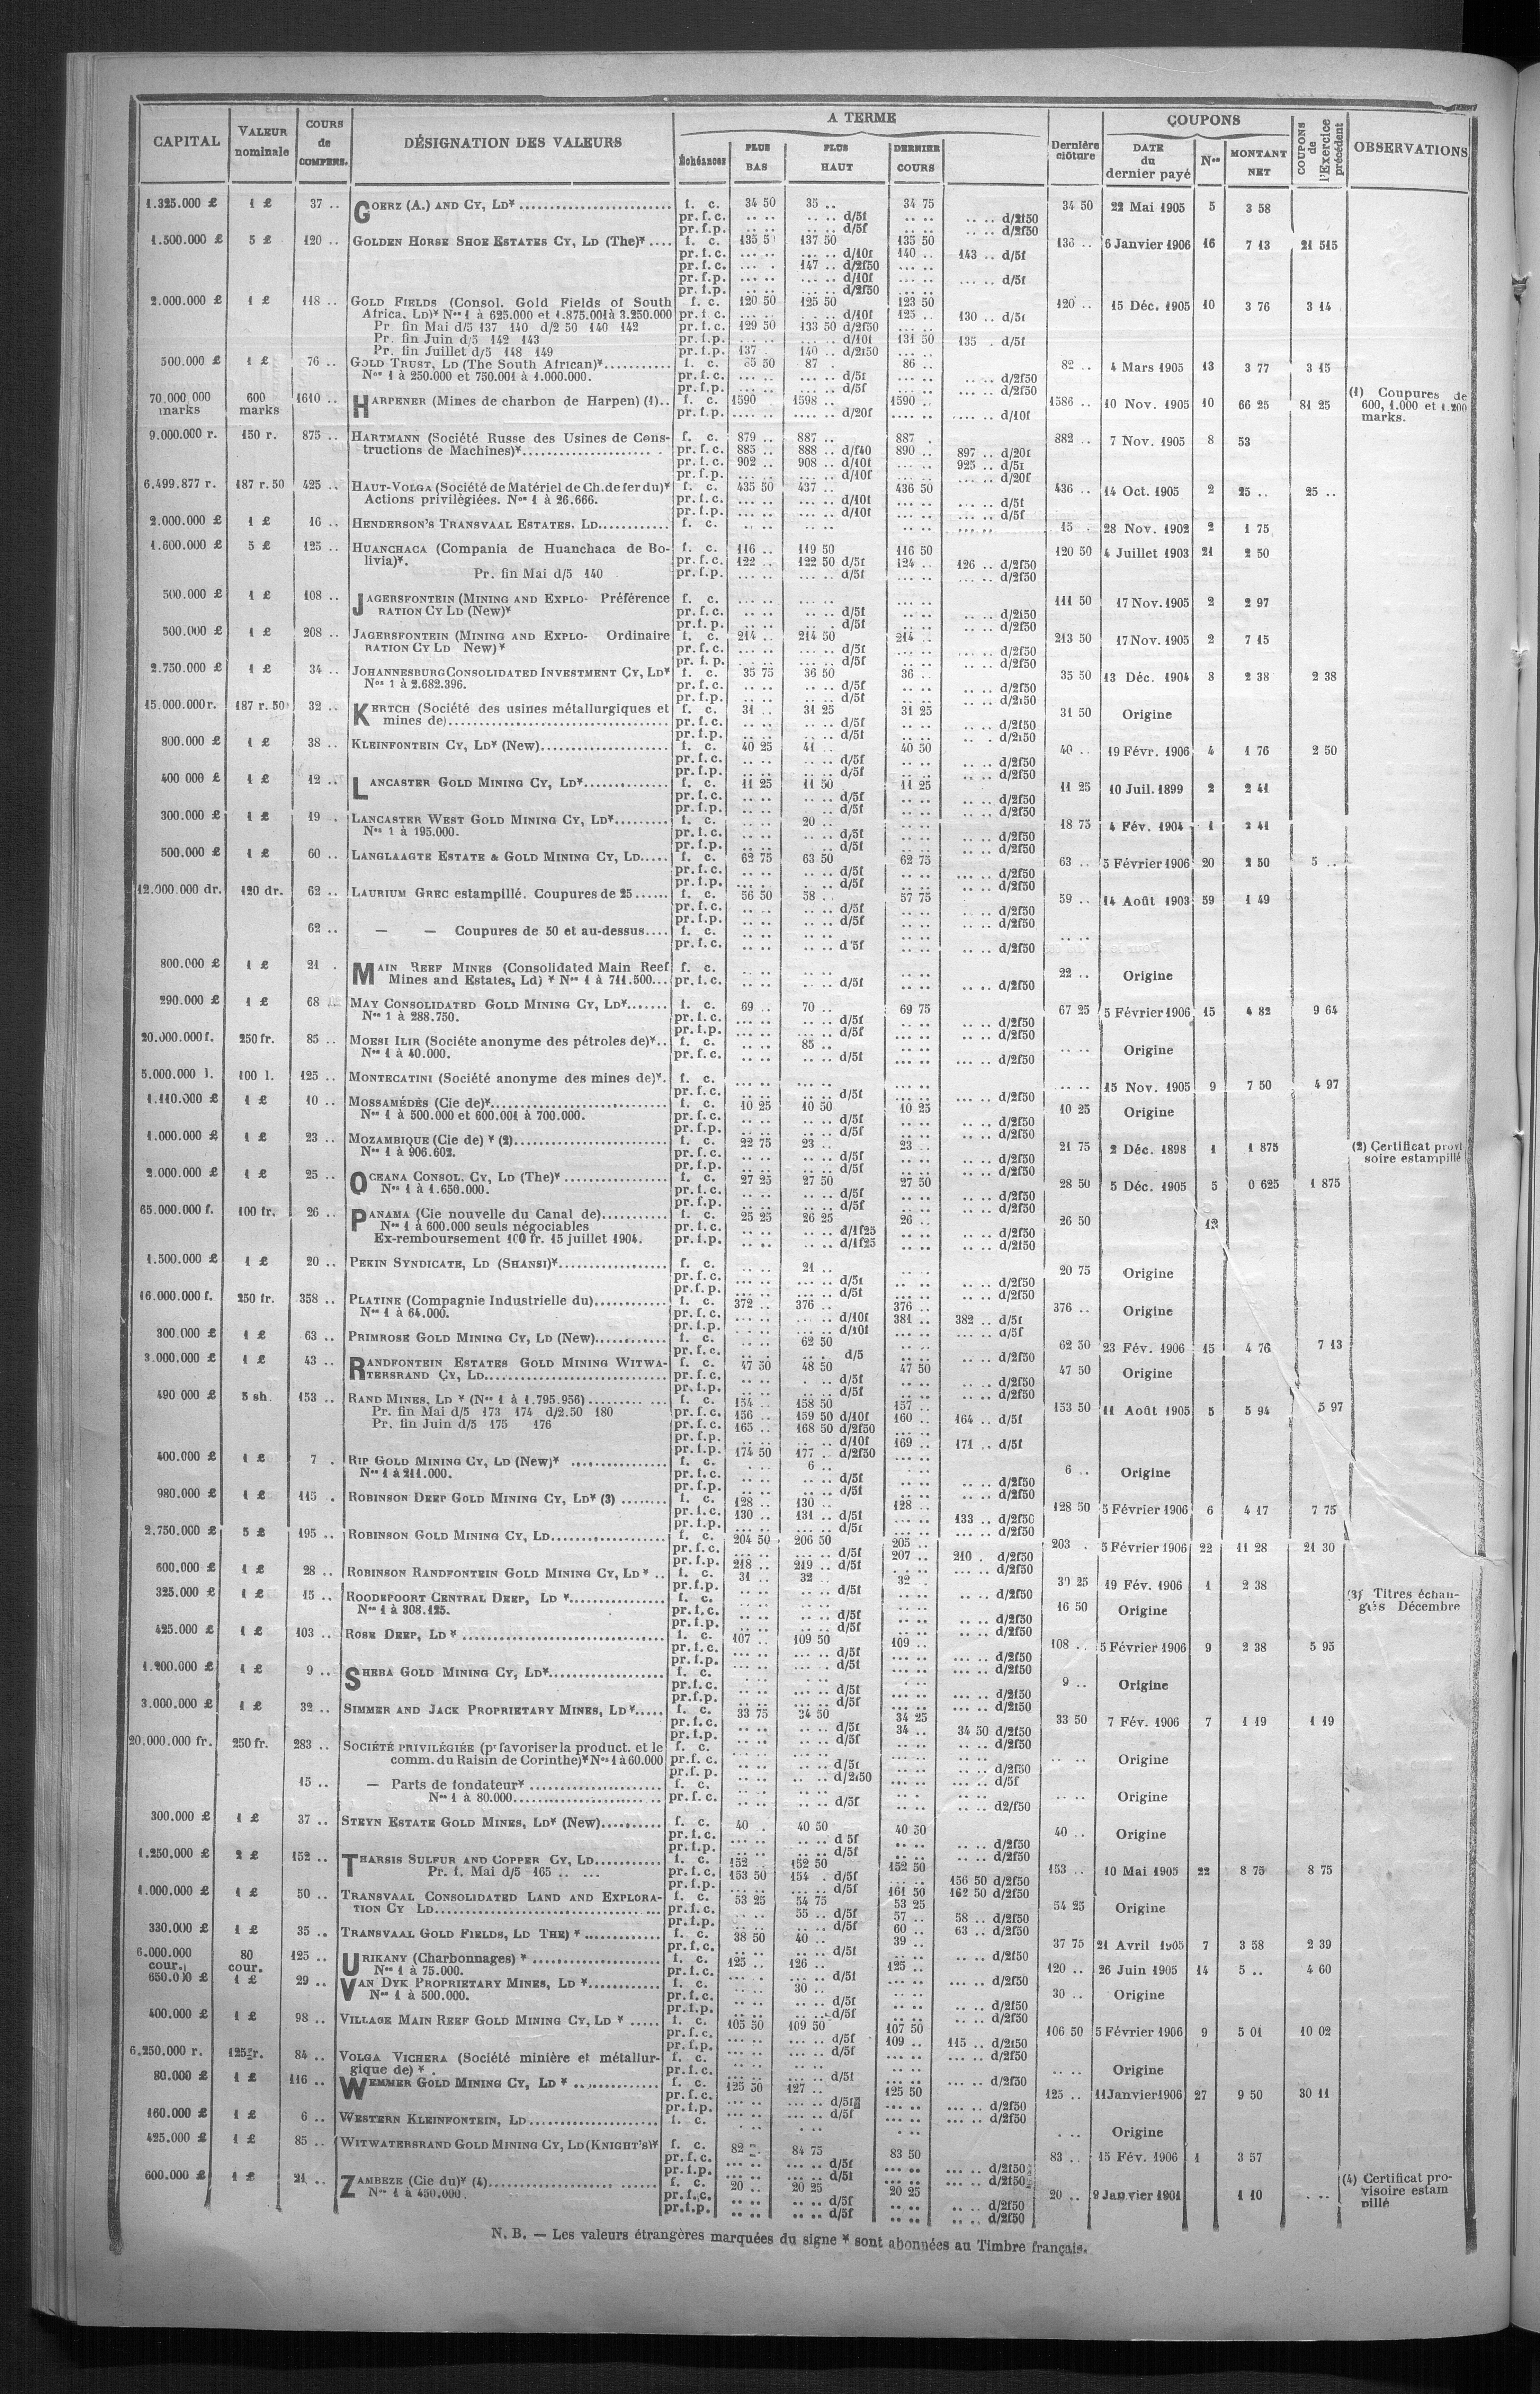 CAPITAL | VALEUR nominale | COURS de COMPENS. | DÉSIGNATION DES VALEURS | A TERME | Dernière clôture | COUPONS | COUPONS de l'Exercice précédent | OBSERVATIONS
Échéances | PLUS BAS | PLUS HAUT | DERNIER COURS | DATE du dernier payé | Nos | MONTANT NET
1.325.000 £ 1 £ 37 .. GOERZ (A.) AND CY, LD* f. c. 34 50 35 .. 34 75 34 50 22 Mai 1905 5 3 58
pr. f. c. .. .. .. .. d/5f .. .. .. .. d/2f50
pr. f. p. .. .. .. .. d/5f .. .. .. .. d/2f50
1.500.000 £ 5 £ 120 .. GOLDEN HORSE SHOE ESTATES CY, LD (The)* f. c. 135 50 137 50 135 50 136 .. 6 Janvier 1906 16 7 13 21 515
pr. f. c. .... .... d/10f 140 .. 143 .. d/5f
pr. f. c. .... 147 .. d/2f50
pr. f. p. .... d/10f .... d/5f
pr. f. p. .... d/2f50
2.000.000 £ 1 £ 118 .. GOLD FIELDS (Consol. Gold Fields of South f. c. 120 50 125 50 123 50 120 .. 15 Déc. 1905 10 3 76 3 14
Africa, LD)* Nos 1 à 625.000 et 1.875.001 à 3.250.000 pr. f. c. .... d/10f 125 .. 130 .. d/5f
Pr. fin Mai d/5 137 140 d/2 50 140 142 pr. f. c. 129 50 133 50 d/2f50
Pr. fin Juin d/5 142 143 pr. f. p. .... d/10f 131 50 135 . d/5f
Pr. fin Juillet d/5 148 149 pr. f. p. 137 140 .. d/2f50
500.000 £ 1 £ 76 .. GOLD TRUST, LD (The South African)* f. c. 50 87 . 86 .. 82 .. 4 Mars 1905 13 3 77 3 15
Nos 1 à 250.000 et 750.001 à 1.000.000. pr. f. c. .... d/5f .... d/2f50
pr. f. p. .... d/5f .... d/2f50
70.000.000 marks 600 marks 1610 .. HARPENER (Mines de charbon de Harpen) (1).. f. c. 1590 1598 .. 1590 .. 1586 .. 10 Nov. 1905 10 66 25 81 25 (1) Coupures de 600, 1.000 et 1.200 marks.
pr. f. p. .... d/20f .... d/10f
9.000.000 r. 150 r. 875 .. HARTMANN (Société Russe des Usines de Cons- f. c. 879 .. 887 .. 887 . 882 .. 7 Nov. 1905 8 53
tructions de Machines)* pr. f. c. 885 .. 888 .. d/f40 890 .. 897 .. d/20f
pr. f. c. 902 .. 908 .. d/10f .... 925 .. d/5f
pr. f. p. .... d/10f .... d/20f
6.499.877 r. 187 r. 50 425 .. HAUT-VOLGA (Société de Matériel de Ch. de fer du)* f. c. 435 50 437 .. 436 50 436 .. 14 Oct. 1905 2 25 .. 25 ..
Actions privilègiées. Nos 1 à 26.666. pr. f. c. .... d/10f .... d/5f
pr. f. p. .... d/10f .... d/5f
2.000.000 £ 1 £ 16 .. HENDERSON'S TRANSVAAL ESTATES. LD f. c. .. .. .. .. .. .. 15 . 28 Nov. 1902 2 1 75
1.600.000 £ 5 £ 125 .. HUANCHACA (Compania de Huanchaca de Bo- f. c. 116 .. 119 50 116 50 120 50 4 Juillet 1903 21 2 50
livia)*. pr. f. c. 122 .. 122 50 d/5f 124 .. 126 .. d/2f50
Pr. fin Mai d/5 140 pr. f. p. .... d/5f .... d/2f50
500.000 £ 1 £ 108 .. JAGERSFONTEIN (MINING AND EXPLO- Préférence f. c. .... .... .... 111 50 17 Nov. 1905 2 2 97
RATION CY LD (New)* pr. f. c. .... d/5f .... d/2f50
pr. f. p. .... d/5f .... d/2f50
500.000 £ 1 £ 208 .. JAGERSFONTEIN (MINING AND EXPLO- Ordinaire f. c. 214 .. 214 50 214 .. 213 50 17 Nov. 1905 2 7 15
RATION CY LD New)* pr. f. c. .... d/5f .... d/2f50
pr. f. p. .... d/5f .... d/2f50
2.750.000 £ 1 £ 34 .. JOHANNESBURG CONSOLIDATED INVESTMENT CY, LD* f. c. 35 75 36 50 36 .. 35 50 13 Déc. 1904 3 2 38 2 38
Nos 1 à 2.682.396. pr. f. c. .... d/5f .... d/2f50
pr. f. p. .... d/5f .... d/2f50
15.000.000 r. 187 r. 50 32 .. KERTCH (Société des usines métallurgiques et f. c. 31 .. 31 25 31 25 31 50 Origine
mines de) pr. f. c. .... d/5f .... d/2f50
pr. f. p. .... d/5f .... d/2f50
800.000 £ 1 £ 38 .. KLEINFONTEIN CY, LD* (New) f. c. 40 25 41 .. 40 50 40 .. 19 Févr. 1906 4 1 76 2 50
pr. f. c. .... d/5f .... d/2f50
pr. f. p. .... d/5f .... d/2f50
400 000 £ 1 £ 12 .. LANCASTER GOLD MINING CY, LD* f. c. 11 25 11 50 11 25 11 25 10 Juil. 1899 2 2 41
pr. f. c. .... d/5f .... d/2f50
pr. f. p. .... d/5f .... d/2f50
300.000 £ 1 £ 19 . LANCASTER WEST GOLD MINING CY, LD* f. c. .. .. 20 .. .. .. 18 75 4 Fév. 1904 1 2 41
Nos 1 à 195.000. pr. f. c. .... d/5f .... d/2f50
pr. f. p. .... d/5f .... d/2f50
500.000 £ 1 £ 60 .. LANGLAAGTE ESTATE & GOLD MINING CY, LD f. c. 62 75 63 50 62 75 63 .. 5 Février 1906 20 2 50 5 ..
pr. f. c. .... d/5f .... d/2f50
pr. f. p. .... d/5f .... d/2f50
12.000.000 dr. 120 dr. 62 .. LAURIUM GREC estampillé. Coupures de 25 f. c. 56 50 58 .. 57 75 59 .. 14 Août 1903 59 1 49
pr. f. c. .... d/5f .... d/2f50
pr. f. p. .... d/5f .... d/2f50
62 .. — — Coupures de 50 et au-dessus f. c. .. .. .. .. .. .. .. ..
pr. f. c. .... d 5f .... d/2f50
800.000 £ 1 £ 21 . MAIN REEF MINES (Consolidated Main Reef f. c. .. .. .. .. .. .. 22 .. Origine
Mines and Estates, Ld) * Nos 1 à 711.500... pr. f. c. .... d/5f .... d/2f50
290.000 £ 1 £ 68 .. MAY CONSOLIDATED GOLD MINING CY, LD* f. c. 69 .. 70 .. 69 75 67 25 5 Février 1906 15 4 82 9 64
Nos 1 à 288.750. pr. f. c. .... d/5f .... d/2f50
pr. f. p. .... d/5f .... d/2f50
20.000.000 f. 250 fr. 85 .. MOESI ILIR (Société anonyme des pétroles de)*.. f. c. .. .. 85 .. .. .. .. .. Origine
Nos 1 à 40.000. pr. f. c. .... d/5f .... d/2f50
5.000.000 l. 100 l. 125 .. MONTECATINI (Société anonyme des mines de)*. f. c. .... .... .... .. .. 15 Nov. 1905 9 7 50 4 97
pr. f. c. .... d/5f .... d/2f50
1.110.000 £ 1 £ 10 .. MOSSAMÉDÈS (Cie de)* f. c. 10 25 10 50 10 25 10 25 Origine
Nos 1 à 500.000 et 600.001 à 700.000. pr. f. c. .... d/5f .... d/2f50
pr. f. p. .... d/5f .... d/2f50
1.000.000 £ 1 £ 23 .. MOZAMBIQUE (Cie de) * (2) f. c. 22 75 23 .. 23 .. 21 75 2 Déc. 1898 1 1 875 (2) Certificat provi soire estampillé
Nos 1 à 906.602. pr. f. c. .... d/5f .... d/2f50
pr. f. p. .... d/5f .... d/2f50
2.000.000 £ 1 £ 25 .. OCEANA CONSOL. CY, LD (The)* f. c. 27 25 27 50 27 50 28 50 5 Déc. 1905 5 0 625 1 875
Nos 1 à 1.650.000. pr. f. c. .... d/5f .... d/2f50
pr. f. p. .... d/5f .... d/2f50
65.000.000 f. 100 fr. 26 .. PANAMA (Cie nouvelle du Canal de) f. c. 25 25 26 25 26 .. 26 50 12
Nos 1 à 600.000 seuls négociables pr. f. c. .... d/1f25 .... d/2f50
Ex-remboursement 100 fr. 15 juillet 1904. pr. f. p. .... d/1f25 .... d/2f50
1.500.000 £ 1 £ 20 .. PEKIN SYNDICATE, LD (SHANSI)* f. c. .. .. 21 .. .. .. 20 75 Origine
pr. f. c. .... d/5f .... d/2f50
pr. f. p. .... d/5f .... d/2f50
16.000.000 f. 250 fr. 358 .. PLATINE (Compagnie Industrielle du) f. c. 372 .. 376 .. 376 .. 376 .. Origine
Nos 1 à 64.000. pr. f. c. .... d/10f 381 .. 382 .. d/5f
pr. f. p. .... d/10f .... d/5f
300.000 £ 1 £ 63 .. PRIMROSE GOLD MINING CY, LD (New) f. c. .. .. 62 50 .. .. 62 50 23 Fév. 1906 15 4 76 7 13
pr. f. c. .... d/5 .... d/2f50
3.000.000 £ 1 £ 43 .. RANDFONTEIN ESTATES GOLD MINING WITWA- f. c. 47 50 48 50 47 50 47 50 Origine
TERSRAND CY, LD pr. f. c. .... d/5f .... d/2f50
pr. f. p. .... d/5f .... d/2f50
490 000 £ 5 sh. 153 .. RAND MINES, LD * (Nos 1 à 1.795.956) f. c. 154 .. 158 50 157 .. 153 50 11 Août 1905 5 5 94 5 97
Pr. fin Mai d/5 173 174 d/2.50 180 pr. f. c. 156 .. 159 50 d/10f 160 .. 164 .. d/5f
Pr. fin Juin d/5 175 176 pr. f. c. 165 .. 168 50 d/2f50
pr. f. p. .... d/10f 169 .. 171 .. d/5f
pr. f. p. 174 50 177 .. d/2f50
400.000 £ 1 £ 7 . RIP GOLD MINING CY, LD (New)* f. c. .. .. 6 .. .. .. 6 .. Origine
Nos 1 à 211.000. pr. f. c. .... d/5f .... d/2f50
pr. f. p. .... d/5f .... d/2f50
980.000 £ 1 £ 115 . ROBINSON DEEP GOLD MINING CY, LD* (3) f. c. 128 .. 130 .. 128 .. 128 50 5 Février 1906 6 4 17 7 75
pr. f. c. 130 .. 131 .. d/5f .... 133 .. d/2f50
pr. f. p. .... d/5f .... d/2f50
2.750.000 £ 5 £ 195 .. ROBINSON GOLD MINING CY, LD f. c. 204 50 206 50 205 .. 203 . 5 Février 1906 22 11 28 21 30
pr. f. c. .... d/5f 207 .. 210 . d/2f50
pr. f. p. 218 .. 219 .. d/5f .... d/2f50
600.000 £ 1 £ 28 .. ROBINSON RANDFONTEIN GOLD MINING CY, LD * .. f. c. 31 .. 32 .. 32 .. 30 25 19 Fév. 1906 1 2 38
pr. f. p. .... d/5f .... d/2f50
325.000 £ 1 £ 15 .. ROODEPOORT CENTRAL DEEP, LD * f. c. 16 50 Origine (3) Titres échan- gés Décembre
Nos 1 à 308.125. pr. f. c. .... d/5f .... d/2f50
pr. f. p. .... d/5f .... d/2f50
425.000 £ 1 £ 103 .. ROSE DEEP, LD * f. c. 107 .. 109 50 109 .. 108 .. 5 Février 1906 9 2 38 5 95
pr. f. c. .... d/5f .... d/2f50
pr. f. p. .... d/5f .... d/2f50
1.200.000 £ 1 £ 9 .. SHEBA GOLD MINING CY, LD* f. c. 9 .. Origine
pr. f. c. .... d/5f .... d/2f50
pr. f. p. .... d/5f .... d/2f50
3.000.000 £ 1 £ 32 .. SIMMER AND JACK PROPRIETARY MINES, LD * f. c. 33 75 34 50 34 25 33 50 7 Fév. 1906 7 1 19 1 19
pr. f. c. .... d/5f 34 .. 34 50 d/2f50
pr. f. p. .... d/5f .... d/2f50
20.000.000 fr. 250 fr. 283 .. SOCIÉTÉ PRIVILÉGIÉE (pr favoriser la product. et le f. c. .. .. Origine
comm. du Raisin de Corinthe)* Nos 1 à 60.000 pr. f. c. .... d/5f .... d/2f50
pr. f. p. .... d/2f50 .... d/5f
15 .. — Parts de fondateur* f. c. .. .. Origine
Nos 1 à 80.000 pr. f. c. .... d/5f .... d2/f50
300.000 £ 1 £ 37 .. STEYN ESTATE GOLD MINES, LD* (New) f. c. 40 . 40 50 40 50 40 .. Origine
pr. f. c. .... d 5f .... d/2f50
pr. f. p. .... d/5f .... d/2f50
1.250.000 £ 2 £ 152 .. THARSIS SULFUR AND COPPER CY, LD f. c. 152 .. 152 50 152 50 153 .. 10 Mai 1905 22 8 75 8 75
Pr. f. Mai d/5 165 .. ... pr. f. c. 153 50 154 . d/5f .... 156 50 d/2f50
pr. f. p. .... d/5f 161 50 162 50 d/2f50
1.000.000 £ 1 £ 50 .. TRANSVAAL CONSOLIDATED LAND AND EXPLORA- f. c. 53 25 54 75 53 25 54 25 Origine
TION CY LD pr. f. c. .... 55 .. d/5f 57 .. 58 .. d/2f50
pr. f. p. .... d/5f 60 .. 63 .. d/2f50
330.000 £ 1 £ 35 .. TRANSVAAL GOLD FIELDS, LD THE) * f. c. 38 50 40 .. 39 .. 37 75 21 Avril 1905 7 3 58 2 39
pr. f. c. .... d/5f .... d/2f50
6.000.000 cour. 80 cour. 125 .. URIKANY (Charbonnages) * f. c. 125 .. 126 .. 125 .. 120 .. 26 Juin 1905 14 5 .. 4 60
Nos 1 à 75.000. pr. f. c. .... d/5f .... d/2f50
650.000 £ 1 £ 29 .. VAN DYK PROPRIETARY MINES, LD * f. c. .. .. 30 .. .. .. 30 .. Origine
Nos 1 à 500.000. pr. f. c. .... d/5f .... d/2f50
pr. f. p. .... d/5f .... d/2f50
400.000 £ 1 £ 98 .. VILLAGE MAIN REEF GOLD MINING CY, LD * f. c. 105 50 109 50 107 50 106 50 5 Février 1906 9 5 01 10 02
pr. f. c. .... d/5f 109 .. 115 .. d/2f50
pr. f. p. .... d/5f .... d/2f50
6.250.000 r. 125 r. 84 .. VOLGA VICHERA (Société minière et métallur- f. c. .. .. Origine
gique de) * . pr. f. c. .... d/5f .... d/2f50
80.000 £ 1 £ 116 .. WEMMER GOLD MINING CY, LD * f. c. 125 50 127 .. 125 50 125 .. 11 Janvier 1906 27 9 50 30 11
pr. f. c. .... d/5f .... d/2f50
pr. f. p. .... d/5f .... d/2f50
160.000 £ 1 £ 6 .. WESTERN KLEINFONTEIN, LD f. c. .. .. Origine
425.000 £ 1 £ 85 .. WITWATERSRAND GOLD MINING CY, LD (KNIGHT'S)* f. c. 82 .. 84 75 83 50 83 .. 15 Fév. 1906 1 3 57
pr. f. c. .... d/5f .... d/2f50
pr. f. p. .... d/5f .... d/2f50
600.000 £ 1 £ 21 .. ZAMBEZE (Cie du)* (4) f. c. 20 .. 20 25 20 25 20 .. 9 Janvier 1901 1 10 .. .. (4) Certificat pro- visoire estam pillé
Nos 1 à 450.000. pr. f. c. .... d/5f .... d/2f50
pr. f. p. .... d/5f .... d/2f50
N. B. — Les valeurs étrangères marquées du signe * sont abonnées au Timbre français.